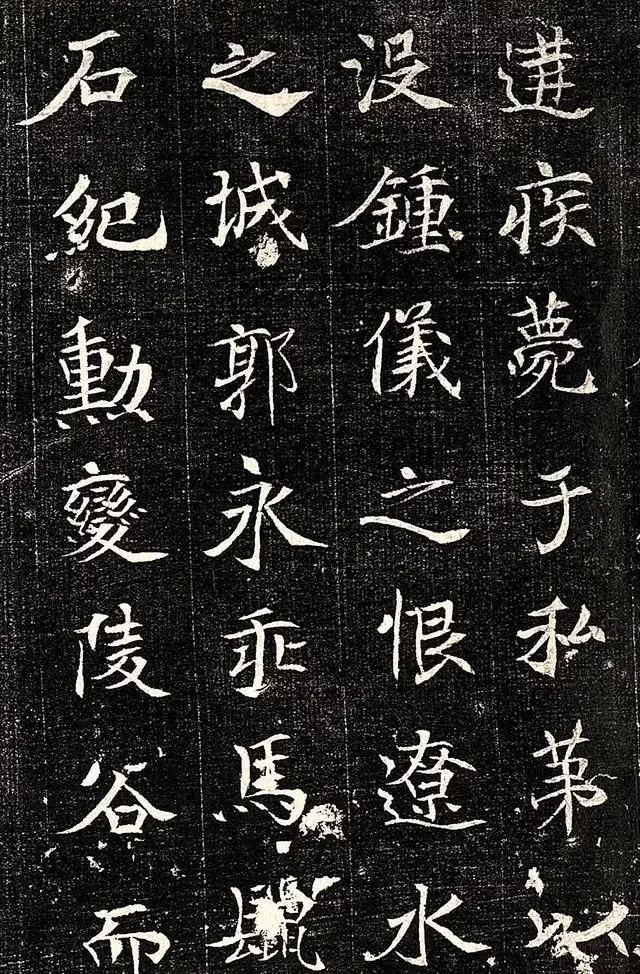 遘疾薨于私第以
没鍾儀之恨遼水
之城郭永乖馬鬣
石紀勳變陵谷而